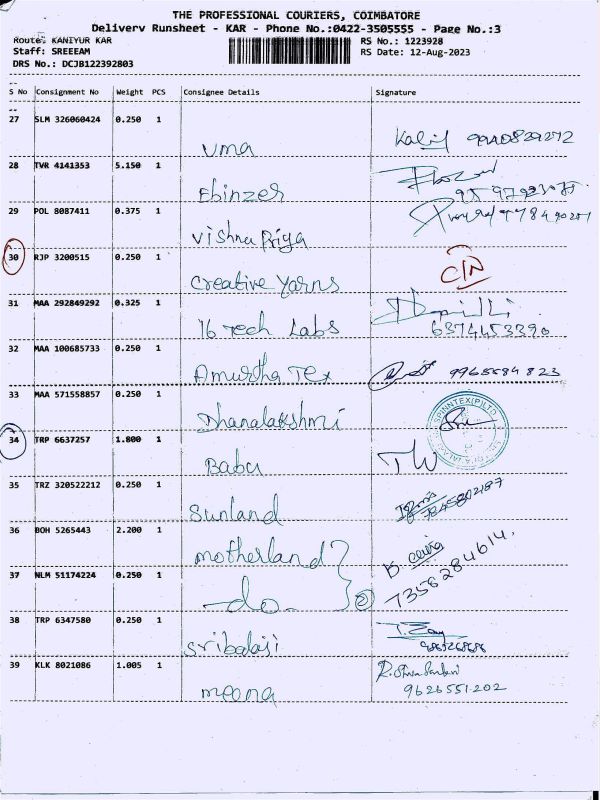 THE PROFESSIONAL COURIERS, COIMBATORE
Delivery Runsheet - KAR - Phone No.:0422-3505555 - Page No.:3
Route: KANIYUR KAR
RS No.: 1223928
Staff: SREEEAM
RS Date: 12-Aug-2023
DRS No.: DCJB122392803
S No Consignment No Weight PCS Consignee Details Signature
27 SLM 326060424 0.250 1
uma
28 TVR 4141353 5.150 1
Ebinzer
29 POL 8087411 0.375 1
Vishnu Priya
30 RJP 3200515 0.250 1
Creative Yarns
31 MAA 292849292 0.325 1
16 Tech Labs 6374453390
32 MAA 100685733 0.250 1
Amurtha Tex 9965584823
33 MAA 571558857 0.250 1
Dhanalakshmi
34 TRP 6637257 1.800 1
Babu
35 TRZ 320522212 0.250 1
Sunland
36 BOH 5265443 2.200 1
Motherland
37 NLM 51174224 0.250 1
do. 7358284614.
38 TRP 6347580 0.250 1
Sribalaji
39 KLK 8021086 1.005 1
meena 9626551202